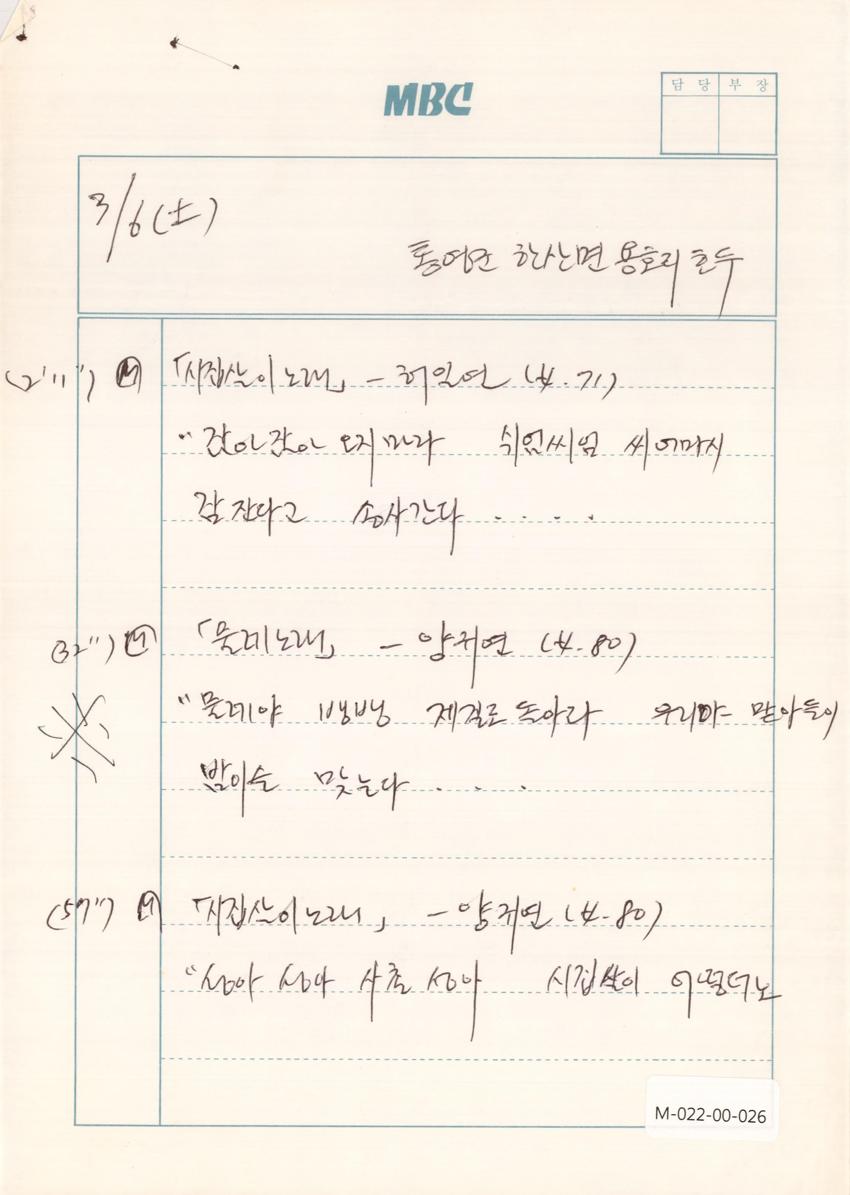 MBC
담 당 부 장
3/6(土)
통영군 한산면 용호리 호두
(2'11") Ⓜ 「시집살이노래」 - 허일연 (女. 71)
"잠아잠아 오지마라 시엄씨엄 씨어마시
잠잔다고 송사간다 . . . .
(32") Ⓜ 「물레노래」 - 양귀연 (女. 80)
※ "물레야 뱅뱅 제걸로 돌아라 우리야 맏아들이
밤이슬 맞는다 . . .
(57") Ⓜ 「시집살이노래」 - 양귀연 (女. 80)
"성아 성아 사촌 성아 시집살이 어떻더노
M-022-00-026